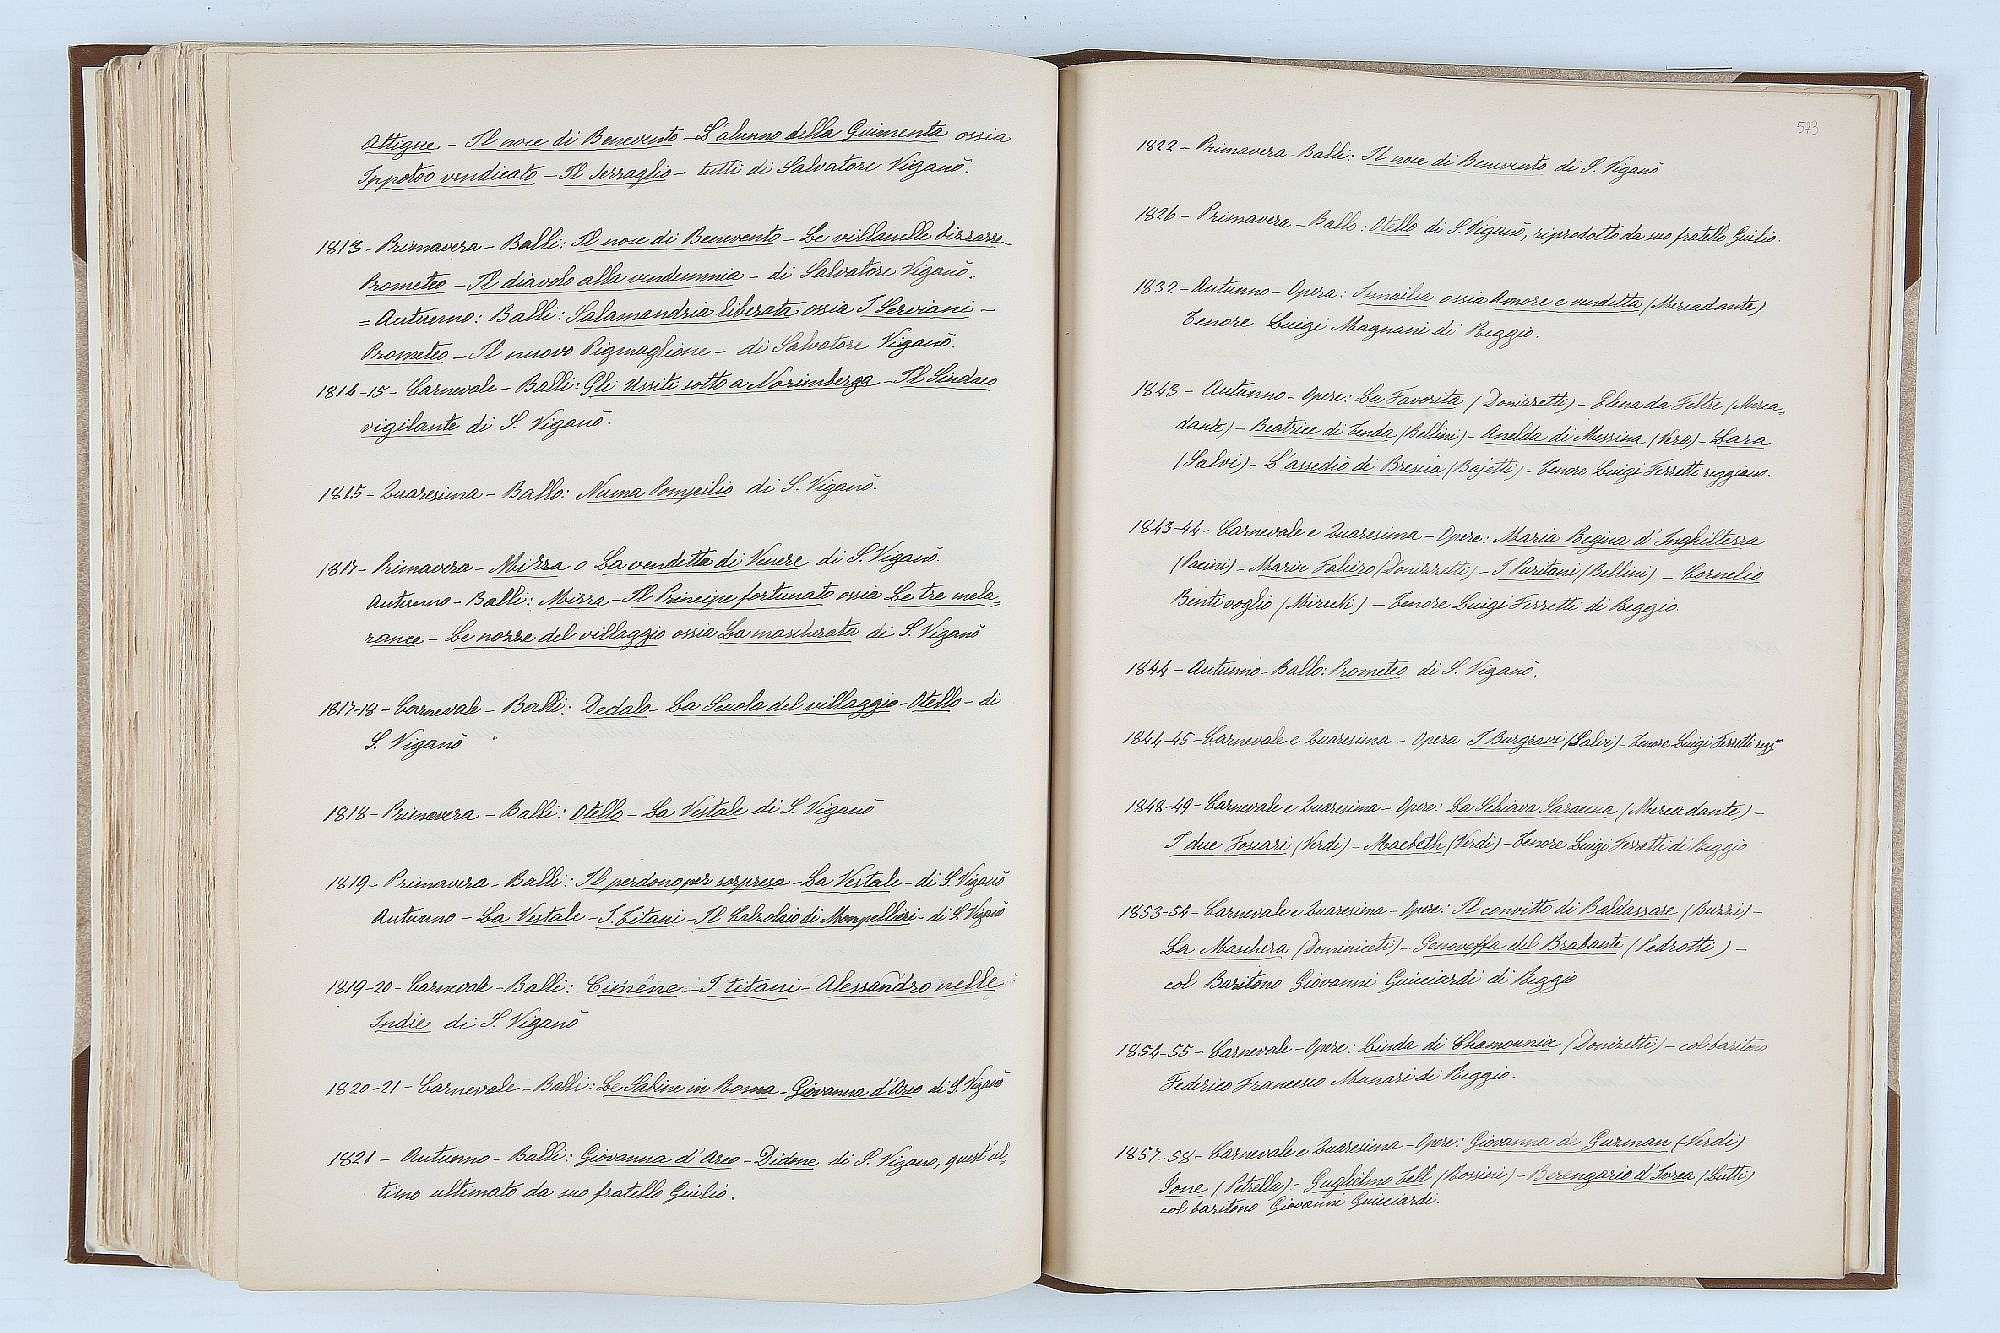 Il noce di Benevento - L'alunno della Giumenta ossia
Ippotoo vendicato - Il Serraglio - tutti di Salvatore Viganò.
1813 - Primavera - Balli: Il noce di Benevento - Le villanelle bizzarre -
Prometeo - Il diavolo alla vendemmia - di Salvatore Viganò.
= Autunno: Balli: Salamandria liberata ossia I Serviani -
Prometeo - Il nuovo Pigmaglione - di Salvatore Viganò.
1814-15 - Carnevale - Balli: Gli Ussiti sotto a Norimberga - Il Sindaco
vigilante di S. Viganò.
1815 - Quaresima - Ballo: Numa Pompilio di S. Viganò.
1817 - Primavera - Mirra o La vendetta di Venere di S. Viganò.
Autunno - Balli: Mirra - Il Principe fortunato ossia Le tre mela-
rance - Le nozze del villaggio ossia La mascherata di S. Viganò
1817-18 - Carnevale - Balli: Dedalo - La Scuola del villaggio - Otello - di
S. Viganò
1818 - Primavera - Balli: Otello - La Vestale di S. Viganò
1819 - Primavera - Balli: Il perdono per sorpresa - La Vestale - di S. Viganò
Autunno - La Vestale - I Titani - Il Calzolaio di Mompellieri - di S. Viganò
1819-20 - Carnevale - Balli: Cimène - I titani - Alessandro nelle
Indie di S. Viganò
1820-21 - Carnevale - Balli: Le Sabine in Roma - Giovanna d'Arco di S. Viganò
1821 - Autunno - Balli: Giovanna d'Arco - Didone di S. Viganò, quest'ul-
timo ultimato da suo fratello Giulio.
573
1822 - Primavera Balli: Il noce di Benevento di S. Viganò
1826 - Primavera - Ballo: Otello di S. Viganò, riprodotto da suo fratello Giulio.
1832 - Autunno - Opera: Ismailia ossia Amore e vendetta (Mercadante)
Tenore Luigi Magnani di Reggio.
1843 - Autunno - Opere: La Favorita (Donizzetti) - Elena da Feltre (Merca-
dante) - Beatrice di Tenda (Bellini) - Anelda di Messina (Vera) - Lara
(Salvi) - L'assedio di Brescia (Bajetti) - Tenore Luigi Ferretti reggiano.
1843-44 - Carnevale e Quaresima - Opere: Maria Regina d'Inghilterra
(Pacini) - Marin Faliero (Donizzetti) - I Puritani (Bellini) - Cornelio
Bentivoglio (Mirecki) - Tenore Luigi Ferretti di Reggio
1844 - Autunno - Ballo: Prometeo di S. Viganò.
1844-45 - Carnevale e Quaresima - Opera I Burgravi (Salvi) - Tenore Luigi Ferretti
1848-49 - Carnevale e Quaresima - Opere: La Schiava Saracena (Mercadante) -
I due Foscari (Verdi) - Macbeth (Verdi) - Tenore Luigi Ferretti di Reggio
1853-54 - Carnevale e Quaresima - Opere: Il convitto di Baldassare (Buzzi) -
La Maschera (Dominiceti) - Genoveffa del Brabante (Pedrotti) -
col Baritono Giovanni Guicciardi di Reggio
1854-55 - Carnevale - Opere: Linda di Chamounix (Donizetti) - col baritono
Federico Francesco Munari di Reggio.
1857-58 - Carnevale e Quaresima - Opere: Giovanna di Guzman (Verdi)
Ione (Petrella) - Guglielmo Tell (Rossini) - Berengario d'Ivrea (Lutti)
col baritono Giovanni Guicciardi.